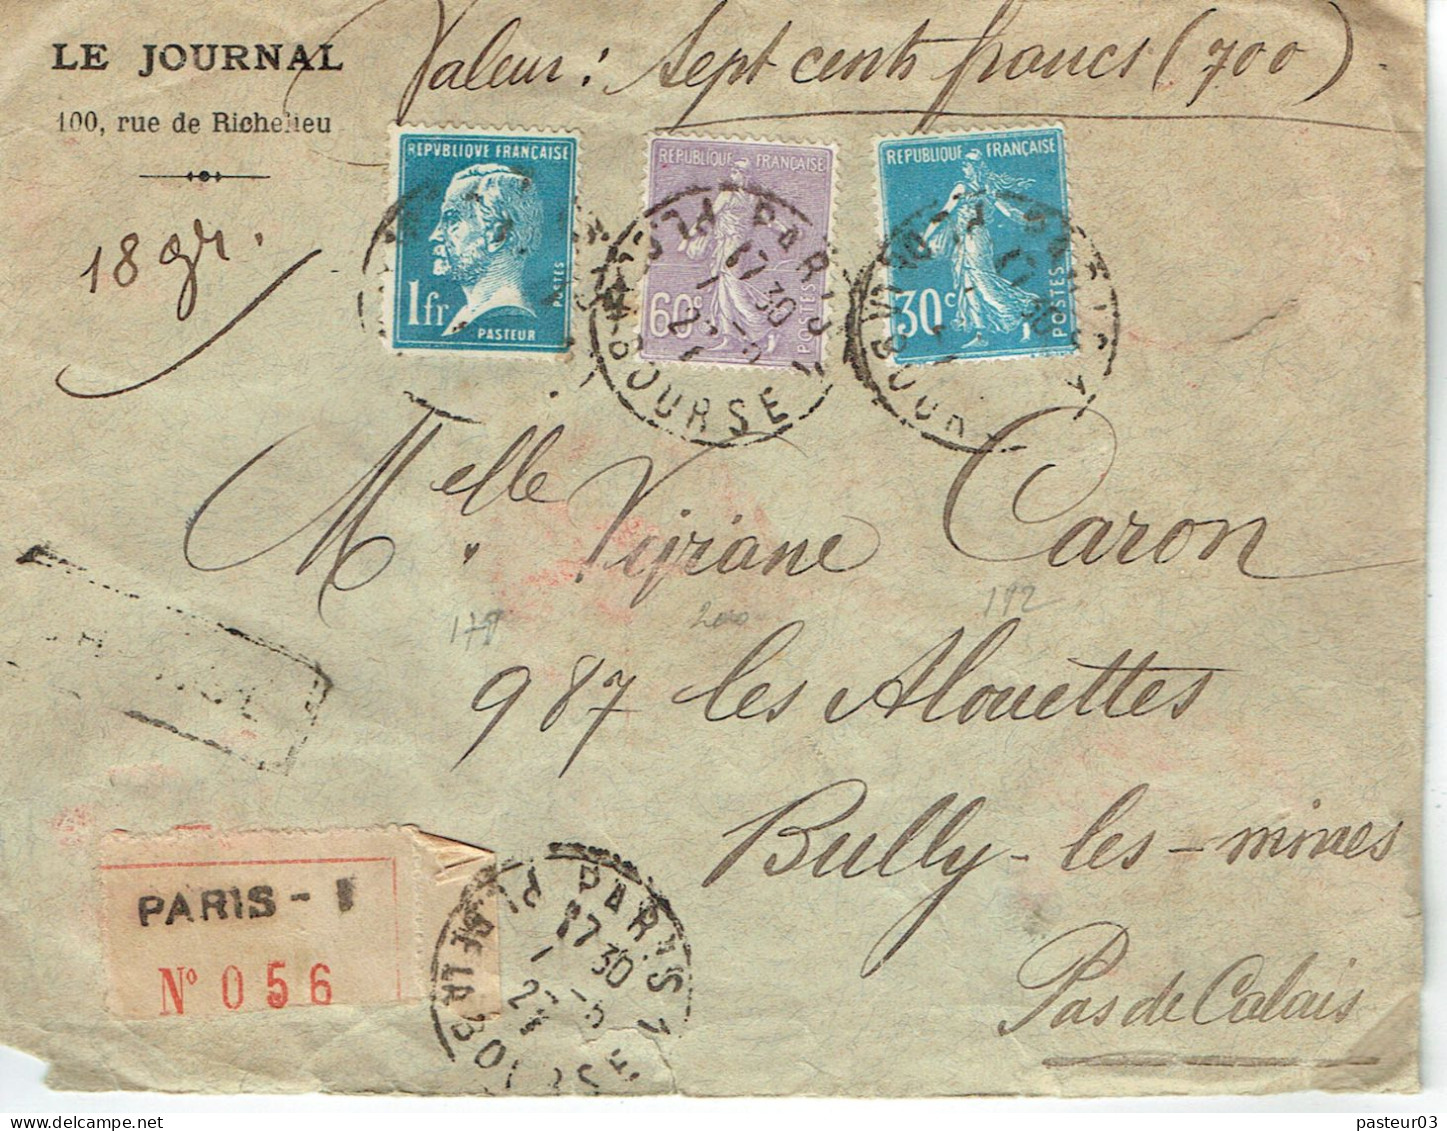 LE JOURNAL
100, rue de Richelieu
Valeur : Sept cents francs (700)
18 gr.
REPVBLIQVE FRANÇAISE
1fr
POSTES
PASTEUR
REPUBLIQUE FRANÇAISE
60c
POSTES
REPUBLIQUE FRANÇAISE
30c
POSTES
PARIS
PL.
17 30
BOURSE
Melle Viviane Caron
178 200 192
987 les Alouettes
Bully-les-mines
Pas de Calais
PARIS - 1
No 056
PARIS 1
PL. DE LA BOURSE
17 30
pasteur03